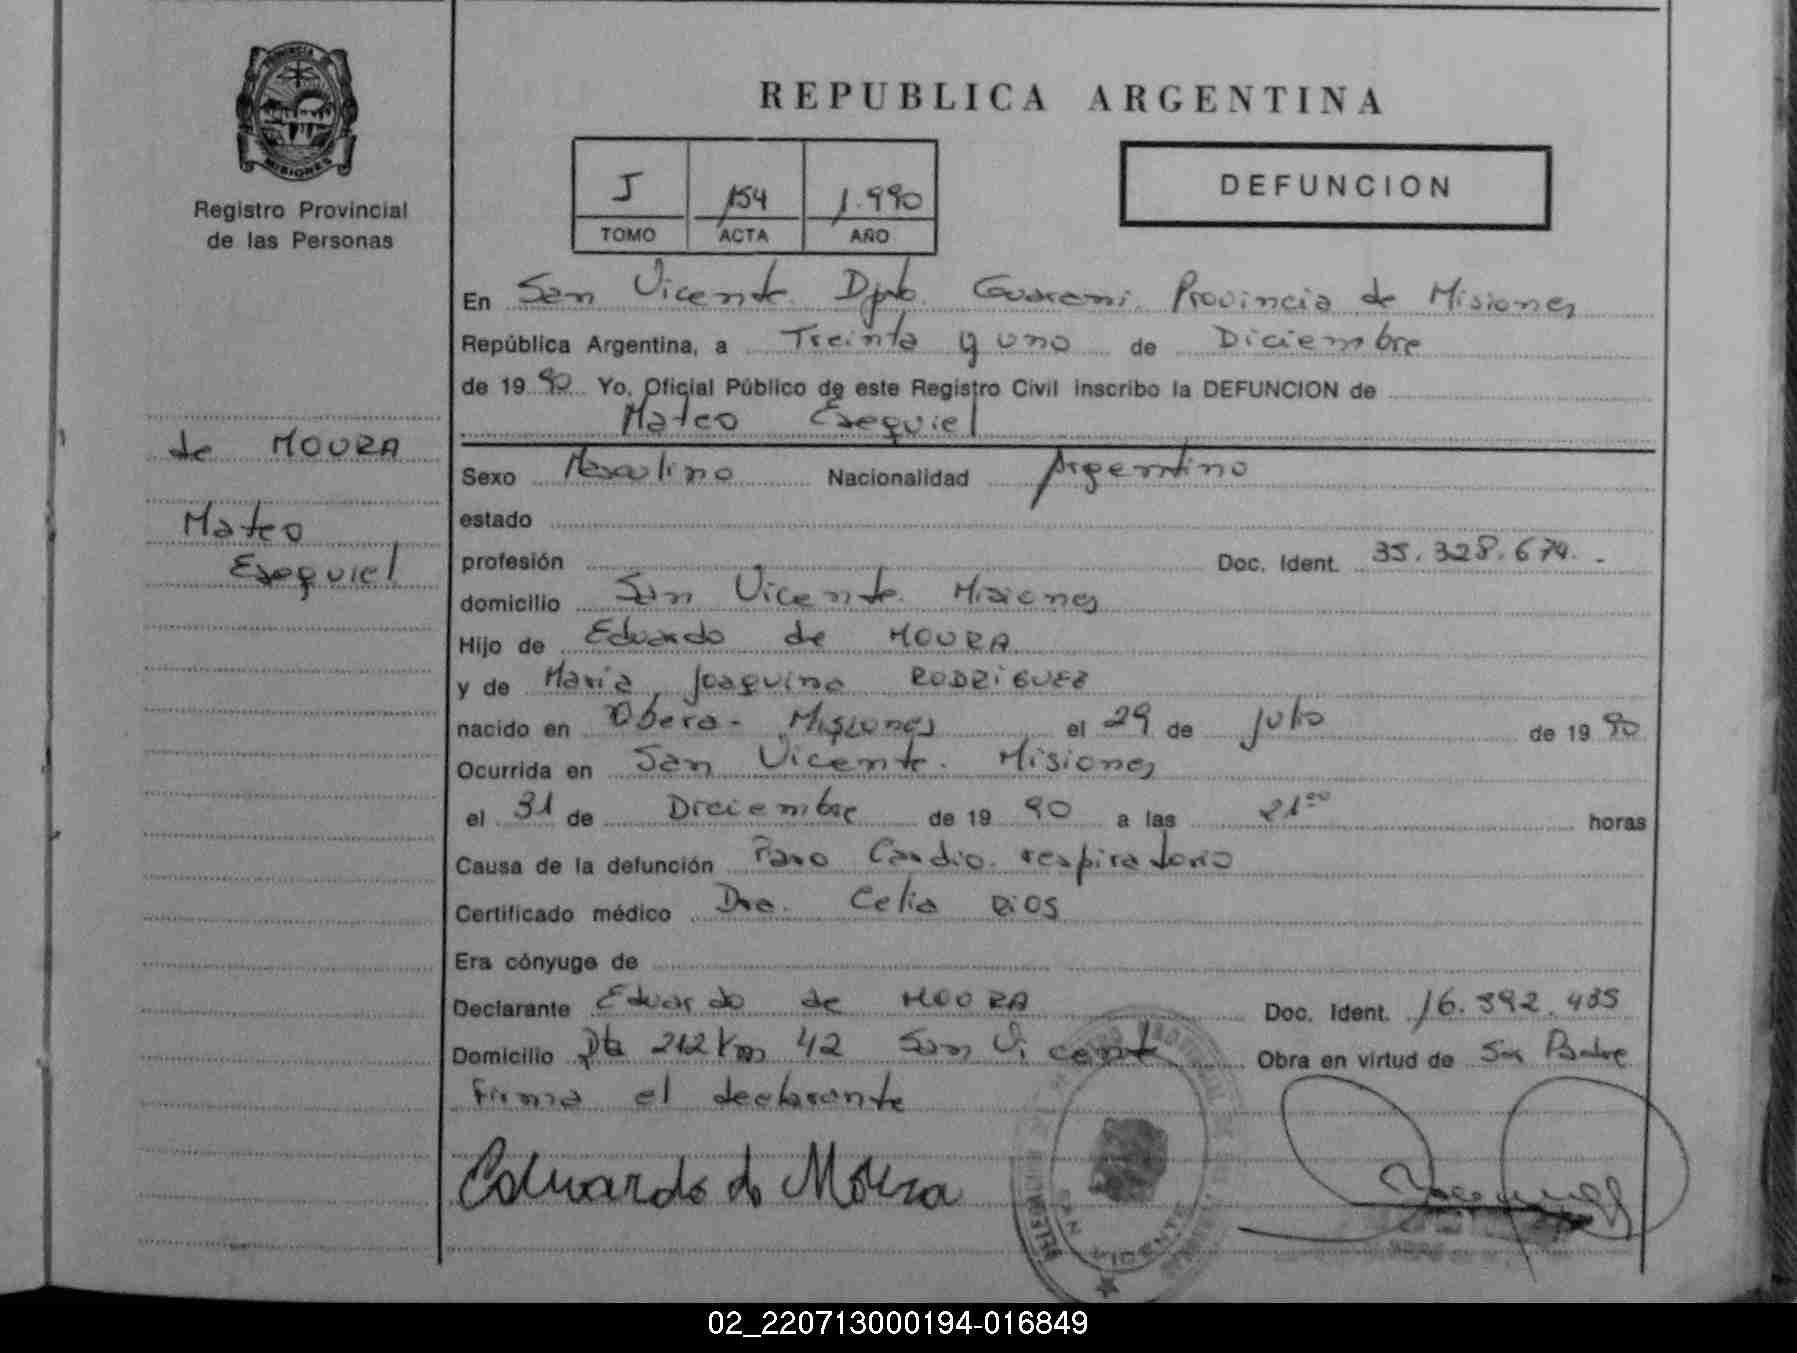 PROVINCIA DE
MISIONES
Registro Provincial
de las Personas
de MOURA
Mateo
Esequiel
REPUBLICA ARGENTINA
J 154 1.990
TOMO ACTA AÑO
DEFUNCION
En San Vicente Dpto. Guarani. Provincia de Misiones
República Argentina, a Treinta y uno de Diciembre
de 19 90 Yo, Oficial Público de este Registro Civil inscribo la DEFUNCION de
Mateo Esequiel
Sexo Masculino Nacionalidad Argentino
estado
profesión Doc. Ident. 35.328.674.-
domicilio San Vicente. Misiones
Hijo de Eduardo de MOURA
y de Maria Joaquina RODRIGUEZ
nacido en Obera - Misiones el 29 de julio de 19 90
Ocurrida en San Vicente. Misiones
el 31 de Diciembre de 19 90 a las 21⁰⁰ horas
Causa de la defunción Paro Cardio. respiratorio
Certificado médico Dra. Celia RIOS
Era cónyuge de
Declarante Eduardo de MOURA Doc. Ident. 16.392.435
Domicilio Rta 212 Km 42 San Vicente Obra en virtud de Ser Padre
Firma el declarante
Eduardo de Moura
SAN VICENTE
02_220713000194-016849